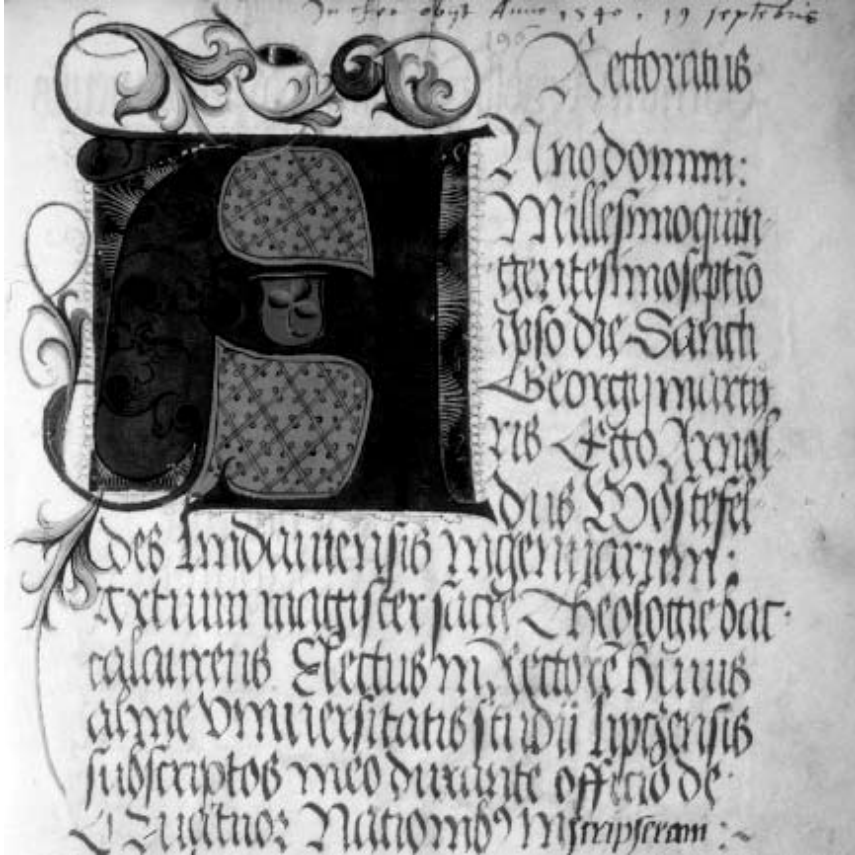 obijt Anno 1540. 19 septebris
Rectoratus
Anno domini:
Millesimoquin
gentesimoseptīo
ipso die Sancti
Georgij marty
ris Ego Arnol
dus Wöstefel
des Lindauiensis ingenuarum:
Artium magister sacre Theologie bac-
calaureus Electus in Rectorē huius
alme Vniuersitatis studii liptzensis
subscriptos meo durante officio de
Quatuor Nationibꝰ Inscripseram:~